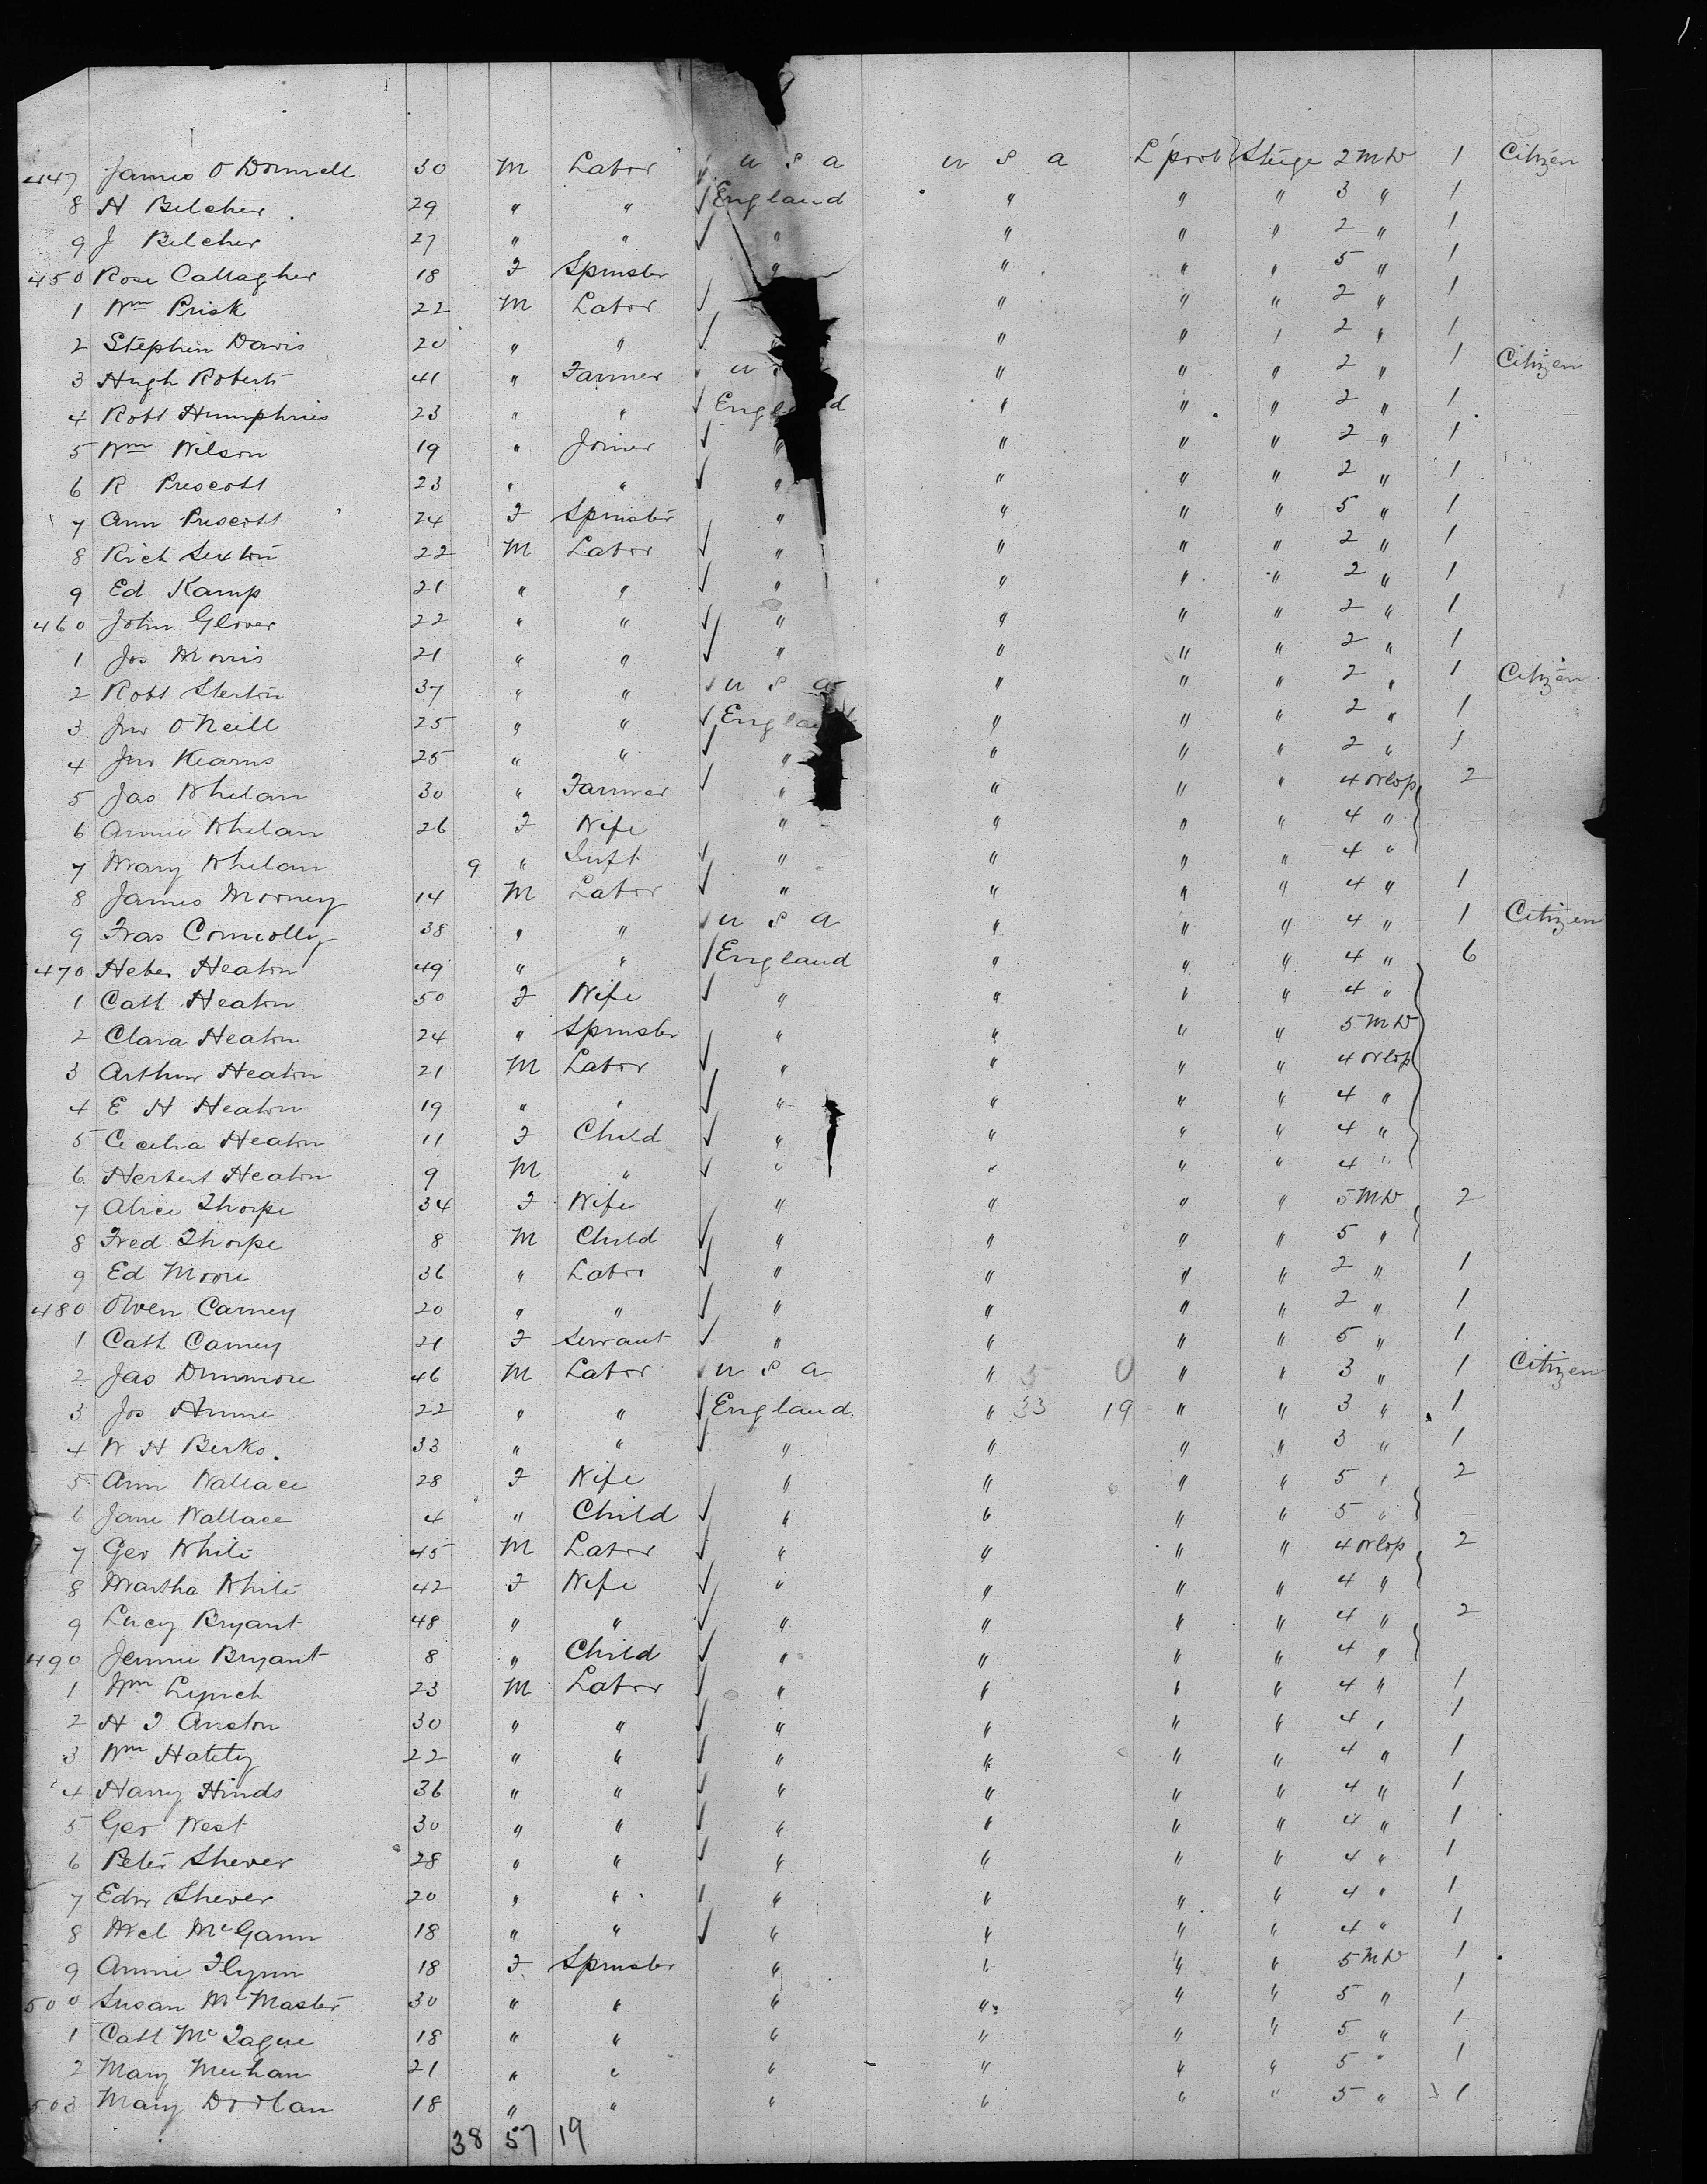 447 James O Donnell 30 M Labor u s a u s a L'pool Steige 2 M D 1 Citizen
8 H Belcher 29 " " England " " " 3 " 1
9 J Belcher 27 " " " " " " 2 " 1
450 Rose Callagher 18 F Spinster " " " " 5 " 1
1 Wm Prisk 22 M Labor " " " 2 " 1
2 Stephen Davis 20 " " " " " 2 " 1
3 Hugh Roberts 41 " Farmer u " " " 2 " 1 Citizen
4 Robt Humphries 23 " " Engl d " " " 2 " 1
5 Wm Wilson 19 " Joiner " " " " 2 " 1
6 R Prescott 23 " " " " " " 2 " 1
7 Ann Prescott 24 F Spinster " " " " 5 " 1
8 Rich Sexton 22 M Labor " " " " 2 " 1
9 Ed Kamp 21 " " " " " " 2 " 1
460 John Glover 22 " " " " " " 2 " 1
1 Jos Morris 21 " " " " " " 2 " 1
2 Robt 37 " " u s a " " " 2 " 1 Citizen
3 Jno O'Neill 25 " " Englan " " " 2 " 1
4 Jno Kearns 25 " " " " " " 2 " 1
5 Jas Whelan 30 " Farmer " " " " 4 Orlop 2
6 Annie Whelan 26 F Wife " " " " 4 "
7 Mary Whelan 9 " Inft " " " " 4 "
8 James Mooney 14 M Labor " " " " 4 " 1
9 Fras Connolly 38 " " u s a " " " 4 " 1 Citizen
470 Heber Heaton 49 " " England " " " 4 " 6
1 Cath Heaton 50 F Wife " " " " 4 "
2 Clara Heaton 24 " Spinster " " " " 5 M D
3 Arthur Heaton 21 M Labor " " " " 4 Orlop
4 E H Heaton 19 " " " " " " 4 "
5 Cecelia Heaton 11 F Child " " " " 4 "
6 Herbert Heaton 9 M " " " " " 4 "
7 Alice Thorpe 34 F Wife " " " " 5 M D 2
8 Fred Thorpe 8 M Child " " " " 5 "
9 Ed Moore 36 " Labor " " " " 2 " 1
480 Owen Carney 20 " " " " " " 2 " 1
1 Cath Carney 21 F Servant " " " " 5 " 1
2 Jas Dunmore 46 M Labor u s a " 5 0 " " 3 " 1 Citizen
3 Jos 22 " " England " 33 19 " " 3 " 1
4 W H Berks 33 " " " " " " 3 " 1
5 Ann Wallace 28 F Wife " " " " 5 " 2
6 Jane Wallace 4 " Child " " " " 5 "
7 Geo White 45 M Labor " " " " 4 Orlop 2
8 Martha White 42 F Wife " " " " 4 "
9 Lucy Bryant 48 " " " " " " 4 " 2
490 Jennie Bryant 8 " Child " " " " 4 "
1 Wm Lynch 23 M Labor " " " " 4 " 1
2 H J 30 " " " " " " 4 " 1
3 Wm 22 " " " " " " 4 " 1
4 Harry Hinds 36 " " " " " " 4 " 1
5 Geo West 30 " " " " " " 4 " 1
6 Peter Shever 28 " " " " " " 4 " 1
7 Edw Shever 20 " " " " " " 4 " 1
8 Mcl McGann 18 " " " " " " 4 " 1
9 Annie Flynn 18 F Spinster " " " " 5 M D 1
500 Susan McMaster 30 " " " " " " 5 " 1
1 Cath McTague 18 " " " " " " 5 " 1
2 Mary Meehan 21 " " " " " " 5 " 1
503 Mary Doolan 18 " " " " " " 5 " 1
38 57 19